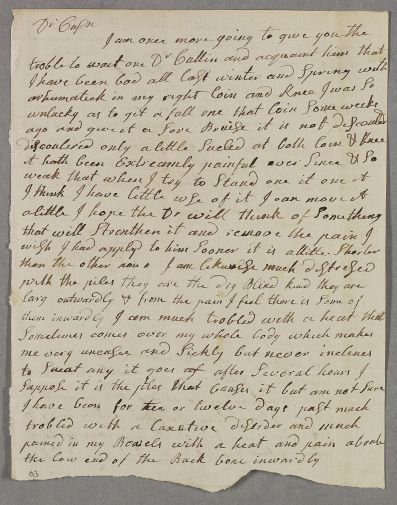 Dr Cusn
I am once more going to give you the
troble to wait one Dr Cullin and acquaint him that
I have been bad all last winter and Spring with
a rhumatick in my right Loin and Knee I was so
unlucky as to git a fall one that Loin Some weeks
ago and gave it a Sore Bruise it is not
discoulered only a little Sueled at both Loin & Knee
it hath been Extreamly painful ever Since & So
weak that when I try to Stand one it one it
I think I have little use of it I can move it
a little I hope the Dr will think of Something
that will Strenthen it and remove the pain I
wish I had apply'd to him Sooner it is a little Shorter
then the other now I am likewise much distresed
with the piles they are the dry Blind kind they are
larg outwardly & from the pain I feel there is Som of
them inwardly I am much trobled with a heat that
Sometimes comes over my whole body which makes
me very uneasie and Sickly but never inclines
to Sweat any it goes of after Several hours I
Suppose it is the piles that Causes it but am not Sure
I have been for ten or twelve days past much
trobled with a laxative disorder and much
pained in my Bowels with a heat and pain about
the low end of the Back bone inwardly